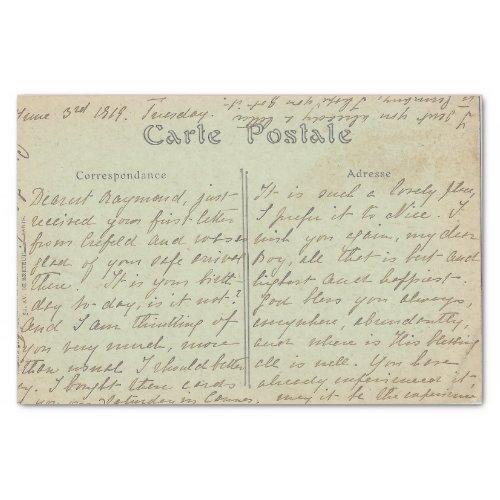 June 3rd 1919. Tuesday.
I sent you
Carte Postale
Correspondance
Adresse
Dearest Raymond, just
received yours first letter
from Crefeld and was so
glad of your safe arrival
there. It is your birth
day to-day, is it not?
And I am thinking of
you very much, more
than usual I should better
say. I bought these cards
you on Saturday in Cannes,
It is such a lovely place,
I prefer it to Nice. I
wish you again, my dear
Boy, all that is but and
highest and happiest.
God bless you always,
anywhere, abundantly,
and where is His blessing
all is well. You have
already experienced it,
may it be the experience